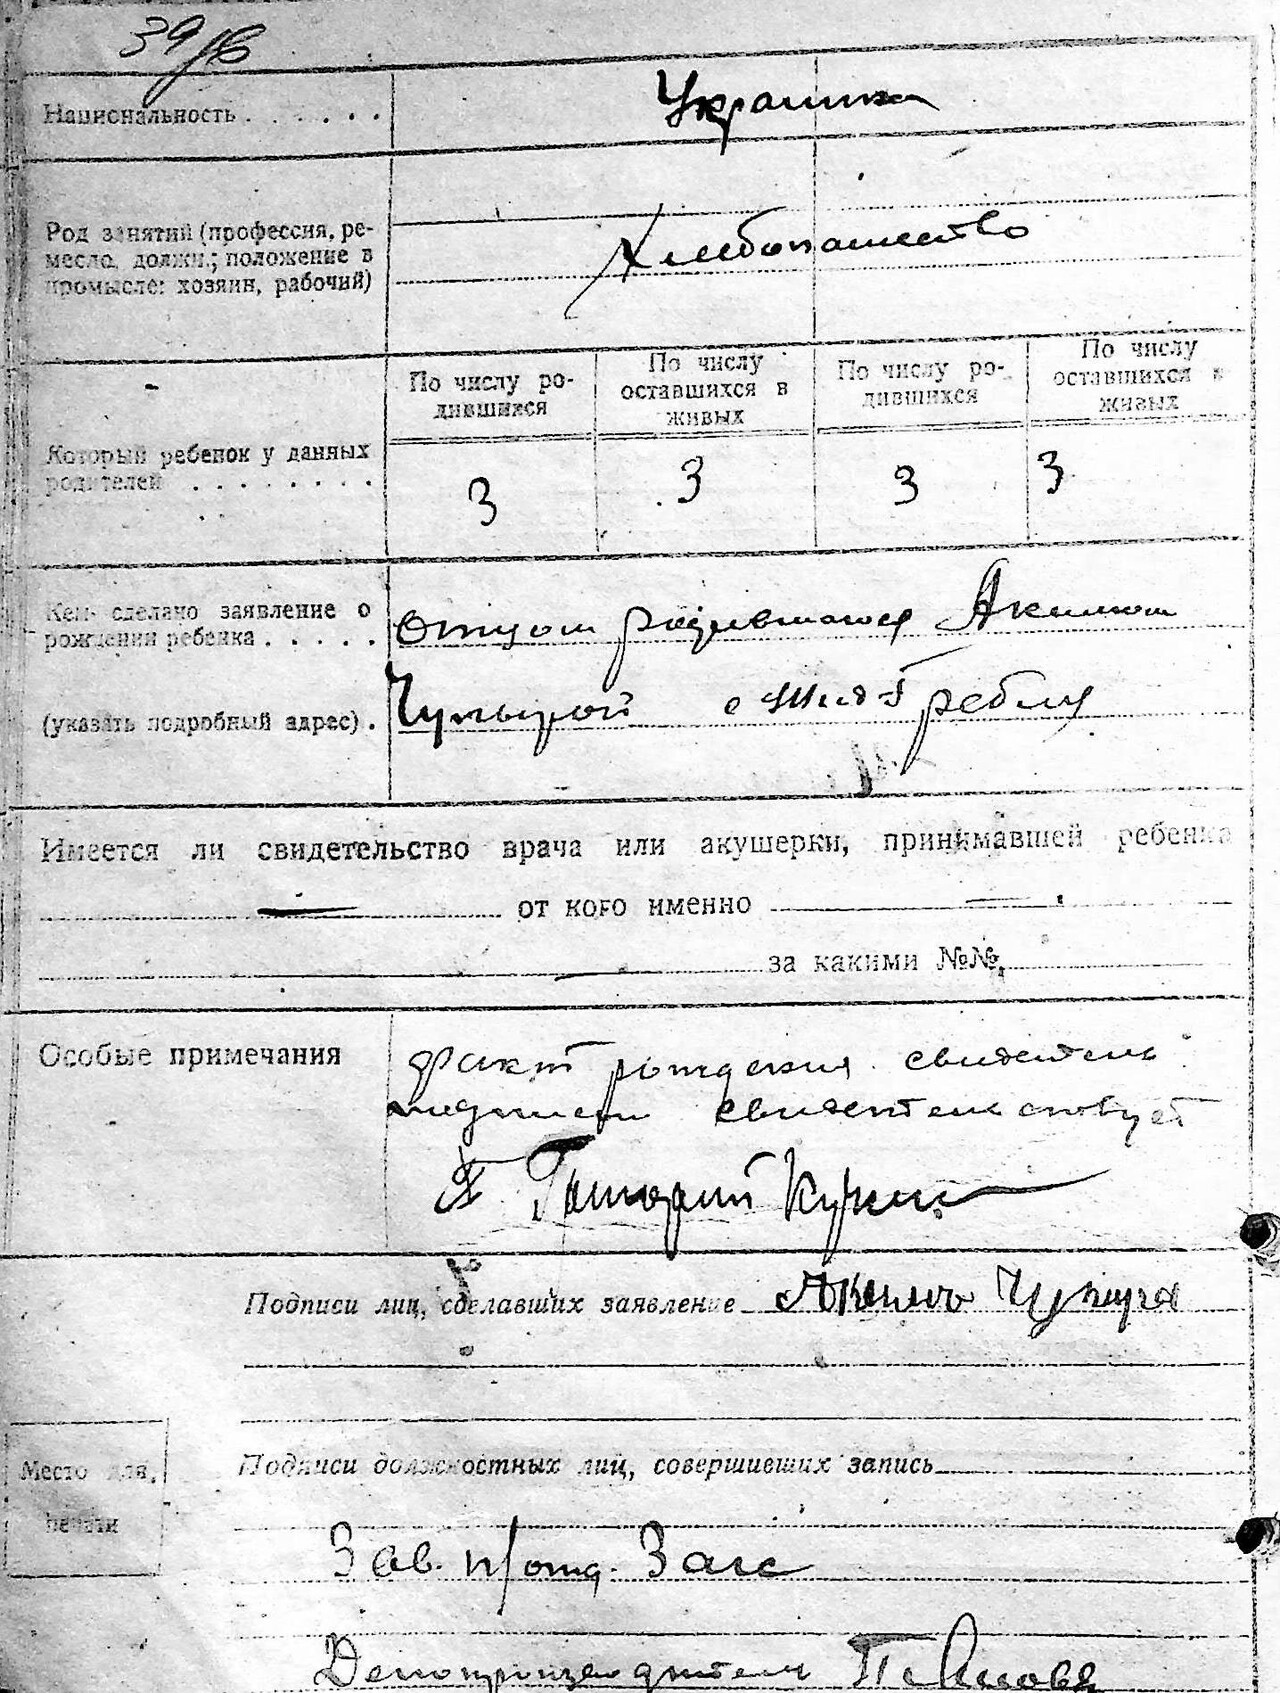 39
Национальность . . . . . .
Украинка
Род занятий (профессия, ре-
месло, должн.; положение в
промысле: хозяин, рабочий)
Хлебопашество
По числу ро-
дившихся
По числу
оставшихся в
живых
По числу ро-
дившихся
По числу
оставшихся в
живых
Который ребенок у данных
родителей . . . . . . . .
3 3 3 3
Кем сделано заявление о
рождении ребенка . . . . .
отцом родившагося Акимом
(указать подробный адрес) .
с
Имеется ли свидетельство врача или акушерки, принимавшей ребенка
от кого именно
за какими №№
Особые примечания
факт рождения свидетель
свидетельствует
Григорий
Подписи лиц, сделавших заявление
Подписи должностных лиц, совершивших запись
Место для
печати
Зав. п/отд. Загс
Делопроизводитель